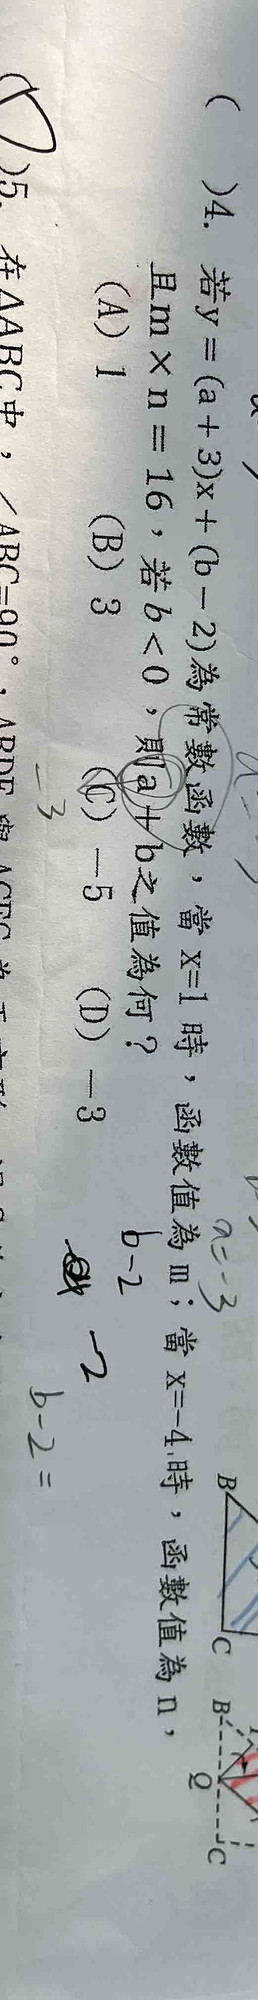 ( )4. 若y＝(a＋3)x＋(b－2)為常數函數，當x=1時，函數值為m；當x=-4時，函數值為n，
且m×n＝16，若b<0，則a＋b之值為何？
(A) 1 (B) 3 (C) －5 (D) －3
a=-3
b-2
-2
b-2=
-3
B C
B C
Q
)5. 在△ABC中，∠ABC=90°，